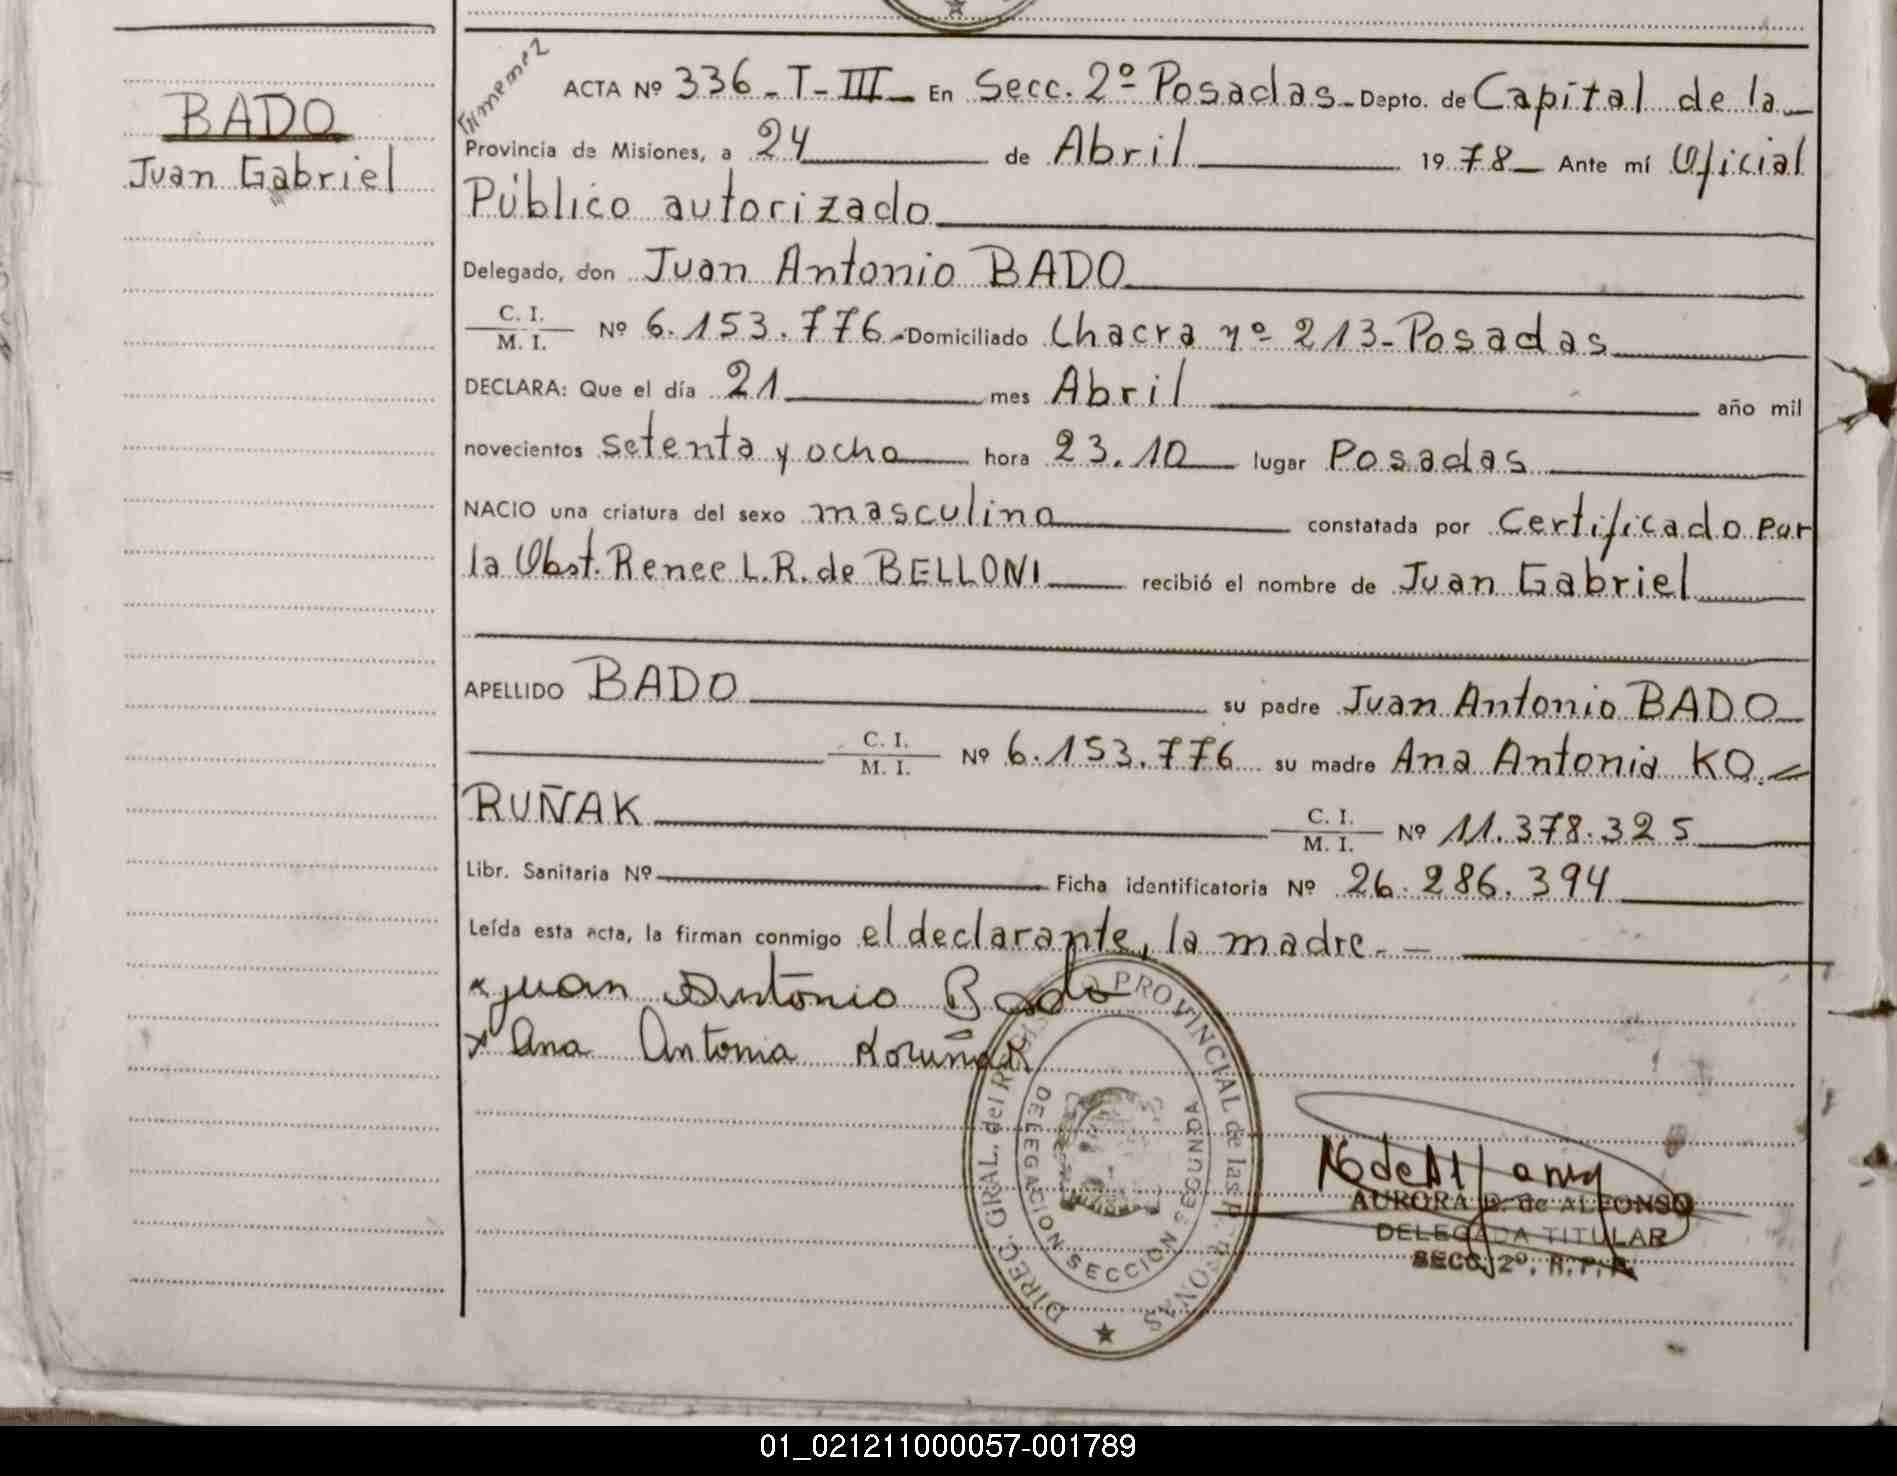 BADO
Juan Gabriel
ACTA Nº 336 - T - III - En Secc. 2º Posadas - Depto. de Capital de la
Provincia de Misiones, a 24 de Abril 1978 - Ante mí Oficial
Público autorizado
Delegado, don Juan Antonio BADO
C. I.
M. I. Nº 6.153.776 - Domiciliado Chacra nº 213 - Posadas
DECLARA: Que el día 21 mes Abril año mil
novecientos setenta y ocho hora 23.10 lugar Posadas
NACIO una criatura del sexo masculino constatada por Certificado por
la Obst. Renee L.R. de BELLONI recibió el nombre de Juan Gabriel
APELLIDO BADO su padre Juan Antonio BADO
C. I.
M. I. Nº 6.153.776 su madre Ana Antonia KO
RUÑAK C. I.
M. I. Nº 11.378.325
Libr. Sanitaria Nº Ficha identificatoria Nº 26.286.394
Leída esta acta, la firman conmigo el declarante, la madre. -
x Juan Antonio Bado
x Ana Antonia Koruñak
PROVINCIAL de las
DIREC. GRAL. del
DELEGACION SECCION SEGUNDA
AURORA de ALFONSO
DELEGADA TITULAR
SECC. 2º. R. P. P.
01_021211000057-001789